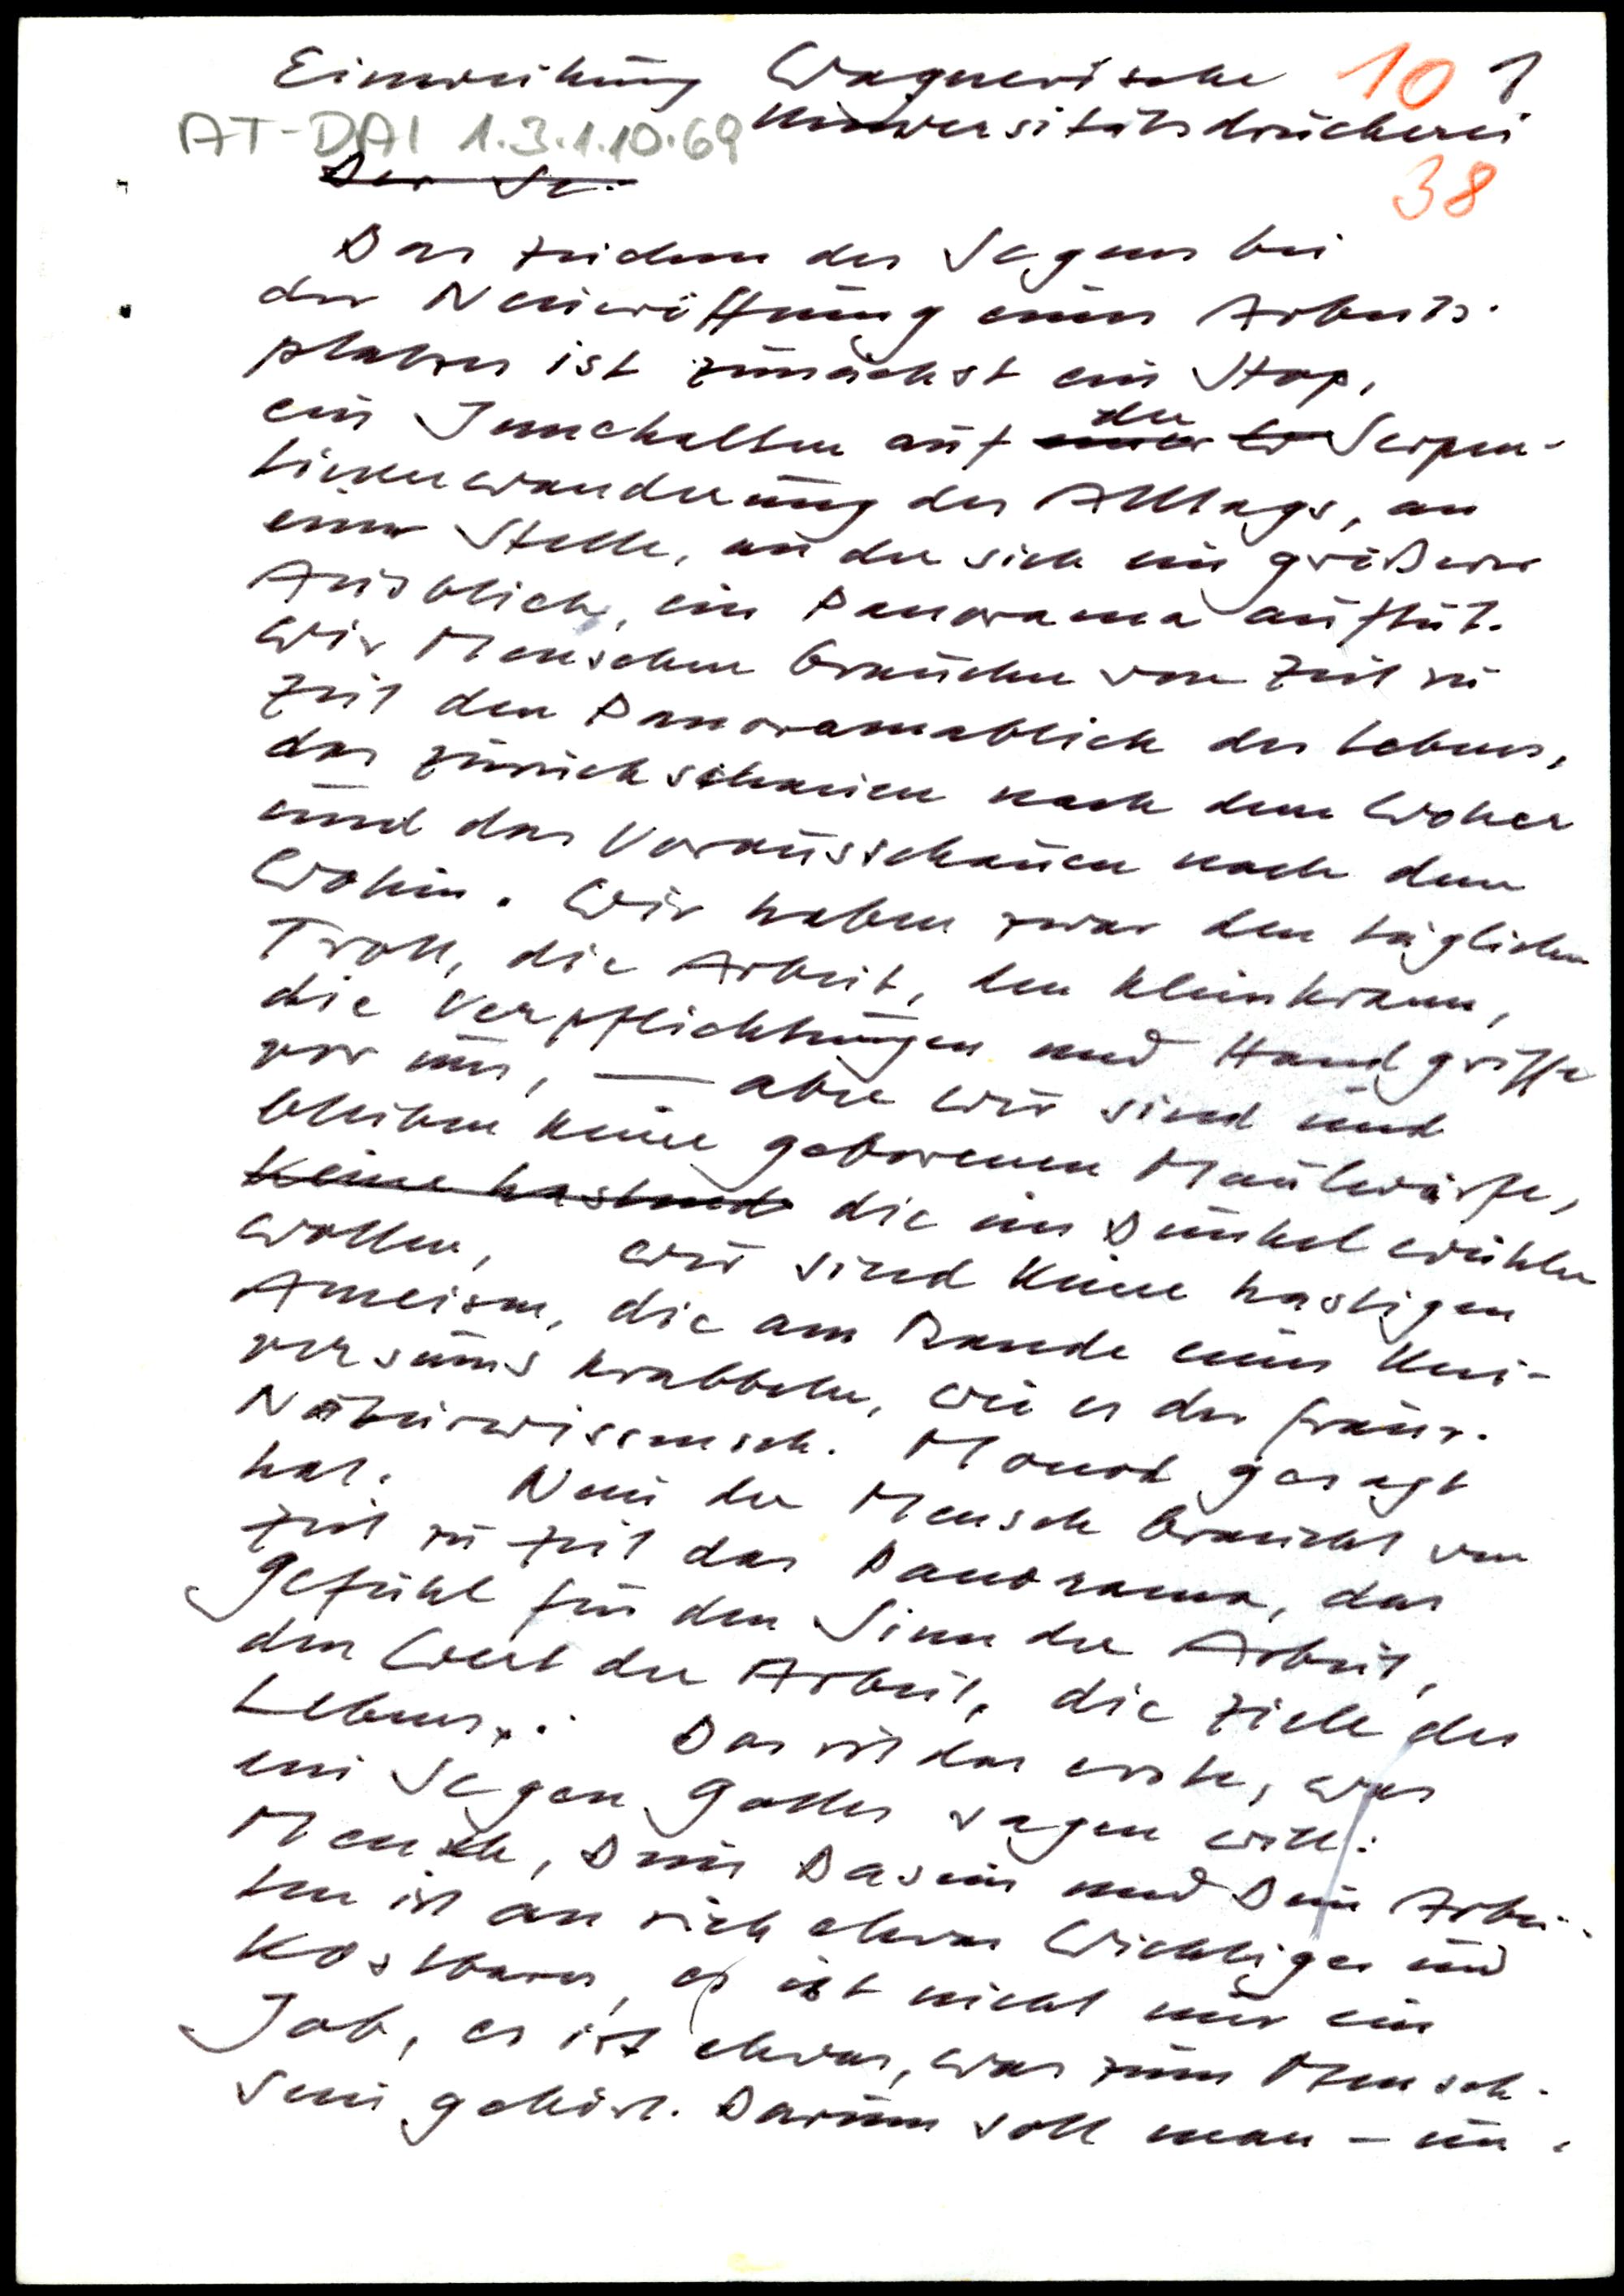 Einweihung Wagnerische 10 1
AT-DAI 1.3.1.10.69 Universitätsdruckerei
Der Se. 38
Das Zeichen des Segens bei
der Neueröffnung eines Arbeits-
platzes ist zunächst ein Stop,
ein Innehalten auf einer der Serpen-
tinenwanderung des Alltags, an
einer Stelle, an der sich ein größerer
Ausblick, ein Panorama auftut.
Wir Menschen brauchen von Zeit zu
Zeit den Panoramablick des Lebens,
das Zurückschauen nach dem Woher
und das Vorausschauen nach dem
Wohin. Wir haben zwar den täglichen
Trott, die Arbeit, den Kleinkram,
die Verpflichtungen und Handgriffe
vor uns, — aber wir sind und
bleiben keine geborenen Maulwürfe,
Keine hastend die im Dunkel wühlen
wollen, wir sind keine hastigen
Ameisen, die am Rande eines Uni-
versums krabbeln, wie es der franz.
Naturwissensch. Monod gesagt
hat. Nein der Mensch braucht von
Zeit zu Zeit das Panorama, das
Gefühl für den Sinn der Arbeit,
den Wert der Arbeit, die Ziele des
Lebens. Das ist das erste, was
ein Segen Gottes sagen will:
Mensch, Dein Dasein und Dein Arbei-
ten ist an sich etwas Wichtiges und
Kostbares, es ist nicht nur ein
Job, es ist etwas, was zum Mensch-
sein gehört. Darum soll man – un-